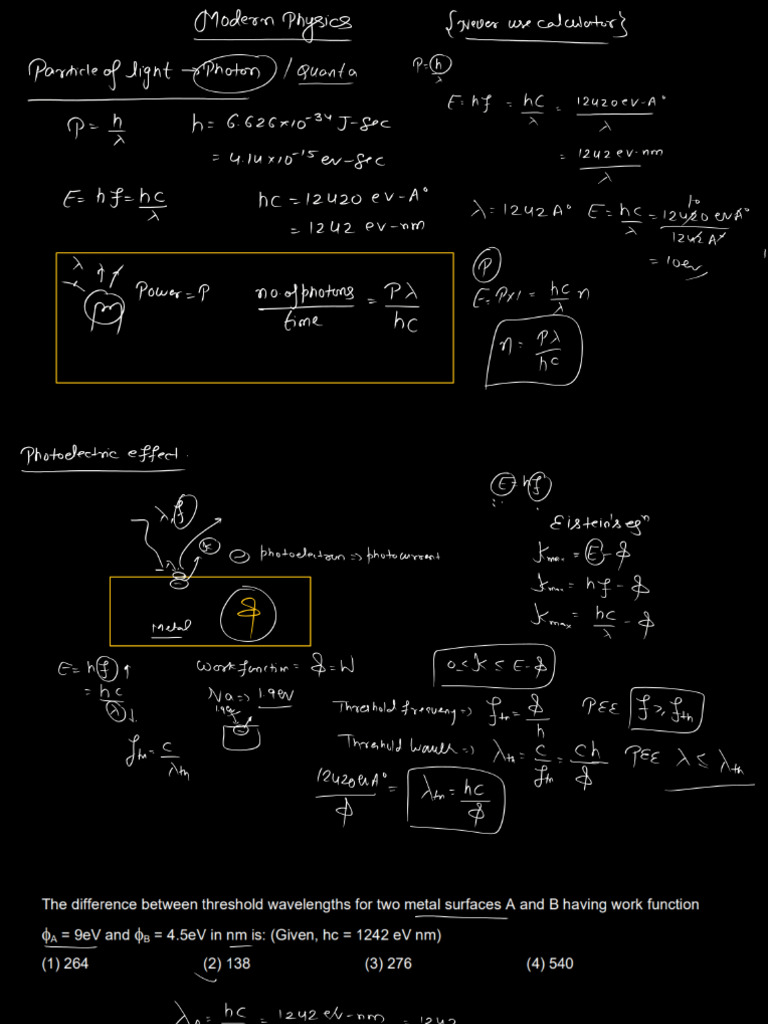 Modern Physics {Never use calculator}
Particle of light → Photon / Quanta
P = h/λ
P = h/λ h = 6.626×10⁻³⁴ J-sec
= 4.14×10⁻¹⁵ ev-sec
E = hf = hc/λ = 12420 ev-A°/λ
= 1242 ev-nm/λ
E = hf = hc/λ hc = 12420 ev-A°
= 1242 ev-nm
λ = 1242 A° E = hc/λ = 12420 ev A°/1242 A°
10
= 10ev
λ
Power = P
no of photons/time = Pλ/hc
P
E = P×1 = hc/λ n
n = Pλ/hc
Photoelectric effect.
E = hf
λ, f
Eistein's eqⁿ
K
photoelectron ⇒ photocurrent
Kmax = E - ϕ
Kmax = hf - ϕ
Kmax = hc/λ - ϕ
Metal ϕ
E = hf ↑
= hc/λ ↓
Work function = ϕ = W
0 ≤ K ≤ E - ϕ
Na ⇒ 1.9ev
1.9ev
Threshold frequency ⇒ fth = ϕ/h PEE f ≥ fth
fth = c/λth
Threshold wavelth ⇒ λth = c/fth = ch/ϕ PEE λ ≤ λth
12420evA°/ϕ = λth = hc/ϕ
The difference between threshold wavelengths for two metal surfaces A and B having work function
ϕA = 9eV and ϕB = 4.5eV in nm is: (Given, hc = 1242 eV nm)
(1) 264 (2) 138 (3) 276 (4) 540
λA = hc = 1242 ev-nm = 1242